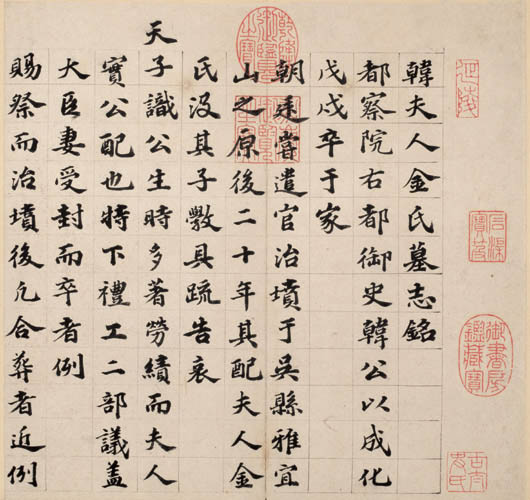 延陵
石渠寶笈
御書房鑑藏寶
韓夫人金氏墓志銘
都察院右都御史韓公以成化
戊戌卒于家
朝廷嘗遣官治墳于吳縣雅宜
山之原後二十年其配夫人金
氏沒其子具疏告哀
天子識公生時多著勞績而夫人
實公配也特下禮工二部議蓋
大臣妻受封而卒者例
賜祭而治墳後凡合葬者近例